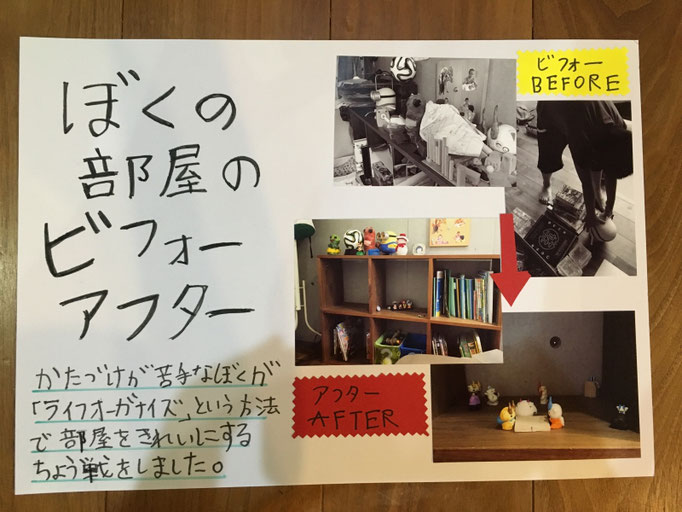 ぼくの
部屋の
ビフォー
アフター
かたづけが苦手なぼくが
「ライフオーガナイズ」という方法
で部屋をきれいにする
ちょう戦をしました。
ビフォー
BEFORE
アフター
AFTER